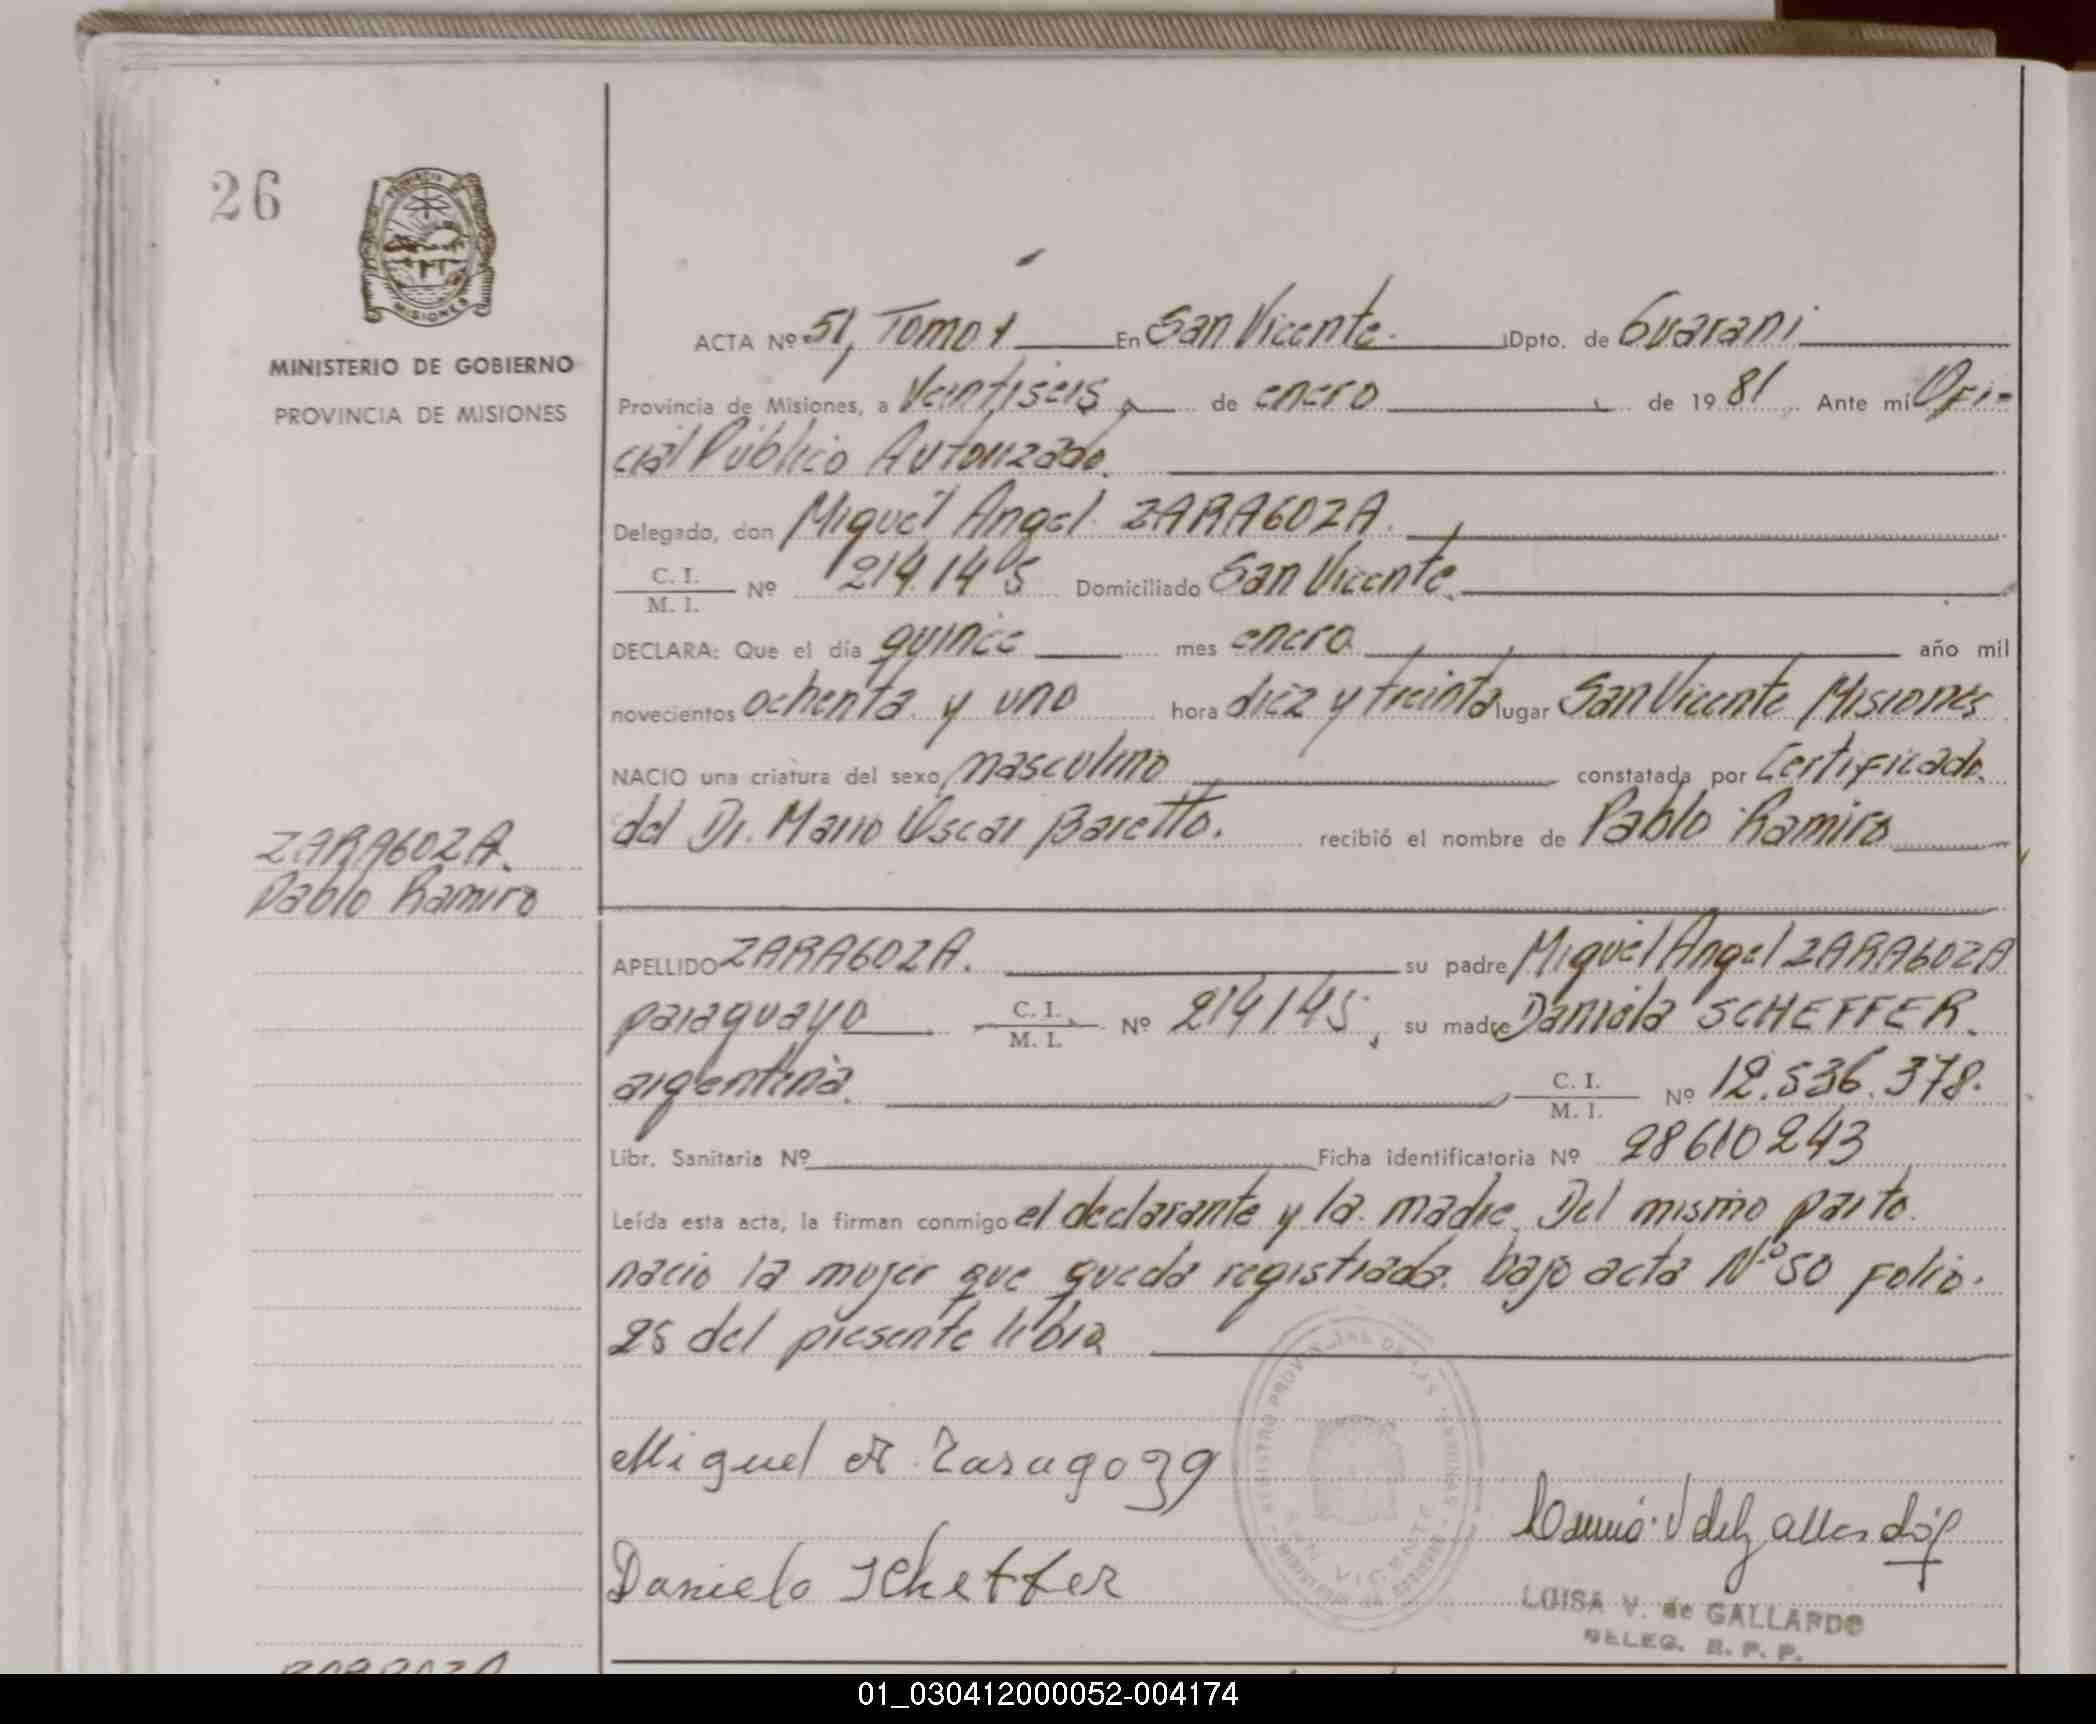 26
PROVINCIA DE
MISIONES
MINISTERIO DE GOBIERNO
PROVINCIA DE MISIONES
ACTA Nº 51, Tomo 1 En San Vicente. Dpto. de Guarani
Provincia de Misiones, a Veintiseis de enero de 1981 Ante mi Ofi-
cial Público Autorizado.
Delegado, don Miguel Angel ZARAGOZA.
C. I.
M. I. Nº 214.145 Domiciliado San Vicente.
DECLARA: Que el día quince mes enero año mil
novecientos ochenta y uno hora diez y treinta lugar San Vicente Misiones
NACIO una criatura del sexo masculino constatada por Certificado
del Dr. Mario Oscar Baretto. recibió el nombre de Pablo Ramiro
ZARAGOZA.
Pablo Ramiro
APELLIDO ZARAGOZA. su padre Miguel Angel ZARAGOZA
paraguayo C. I. M. I. Nº 214145, su madre Daniela SCHEFFER.
argentina. C. I. M. I. Nº 12.536.378.
Libr. Sanitaria Nº Ficha identificatoria Nº 28610243
Leída esta acta, la firman conmigo el declarante y la madre. Del mismo parto
nacio la mujer que queda registrada bajo acta Nº 50 Folio
25 del presente libro
Miguel A. Zaragoza
Daniela Scheffer
SAN VICENTE
LUISA V. de GALLARDO
DELEG. R. P. P.
01_030412000052-004174